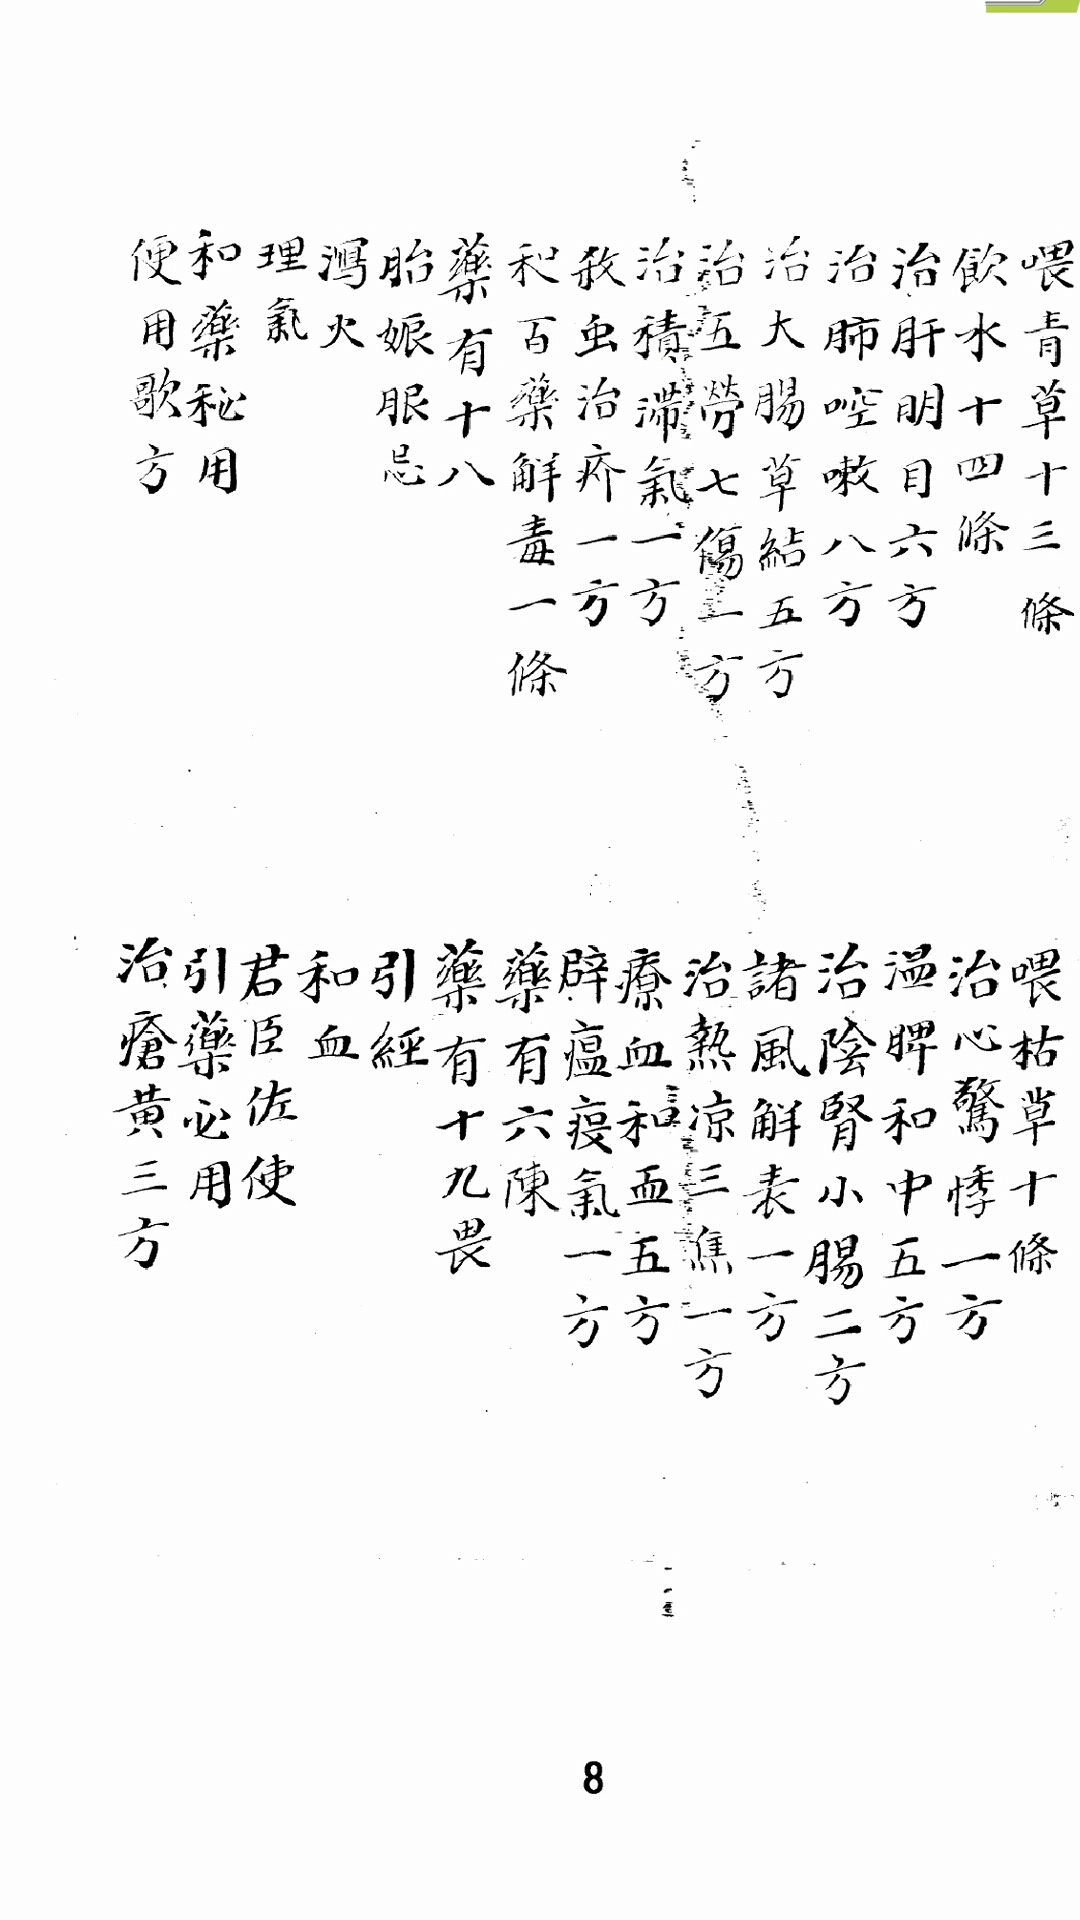 喂青草十三條
飲水十四條
治肝明目六方
治肺啌嗽八方
治大腸草結五方
治五勞七傷一方
治積滯氣一方
殺虫治疥一方
和百藥解毒一條
藥有十八
胎娠服忌
瀉火
理氣
和藥秘用
便用歌方
喂枯草十條
治心驚悸一方
溫脾和中五方
治陰腎小腸二方
諸風解表一方
治熱凉三焦一方
療血和血五方
辟瘟疫氣一方
藥有六陳
藥有十九畏
引經
和血
君臣佐使
引藥必用
治瘡黃三方
8